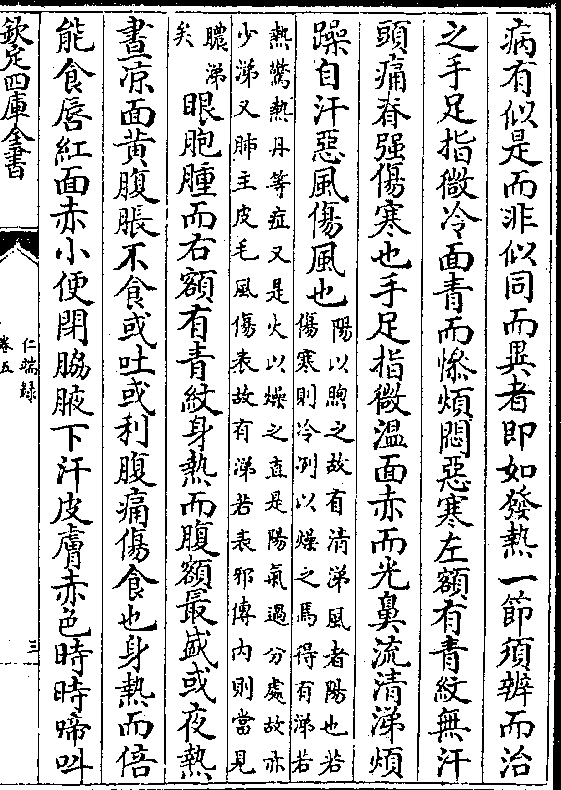 病有似是而非似同而異者即如發熱一節須辨而治
之手足指微冷面青而慘煩悶惡寒左額有青紋無汗
頭痛脊强傷寒也手足指微溫面赤而光鼻流清涕煩
躁自汗惡風傷風也陽以煦之故有清涕風者陽也若
傷寒則冷冽以燥之焉得有涕若
熱驚熱丹等症又是火以燥之直是陽氣過分處故亦
少涕又肺主皮毛風傷表故有涕若表邪傳内則當見
膿涕
矣眼胞腫而右額有青紋身熱而腹額最盛或夜熱
晝凉面黄腹脹不食或吐或利腹痛傷食也身熱而倍
能食唇紅面赤小便閉脇腋下汗皮膚赤色時時啼叫
欽定四庫全書
仁端録
卷五
三